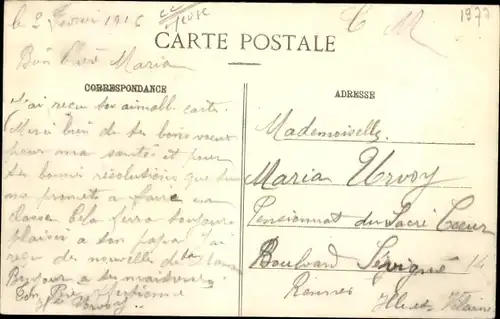 le 2 Février 1916
C M
1977
CARTE POSTALE
Bien Chère Maria
CORRESPONDANCE
J'ai reçu ton aimable carte.
Merci bien de tes bons voeux
pour ma santé et pour
tes bonnes résolutions que tu
me promets à faire en
classe Cela ferra toujours
plaisir a ton papa, j'ai
reçu des nouvelle de ta
Bonjour a tes maitresses
Ton Père
Urvoy
ADRESSE
Mademoiselle
Maria Urvoy
Pensionnat du Sacré Coeur
Boulvard Sévigné 14
Rennes
Ille et Vilaine